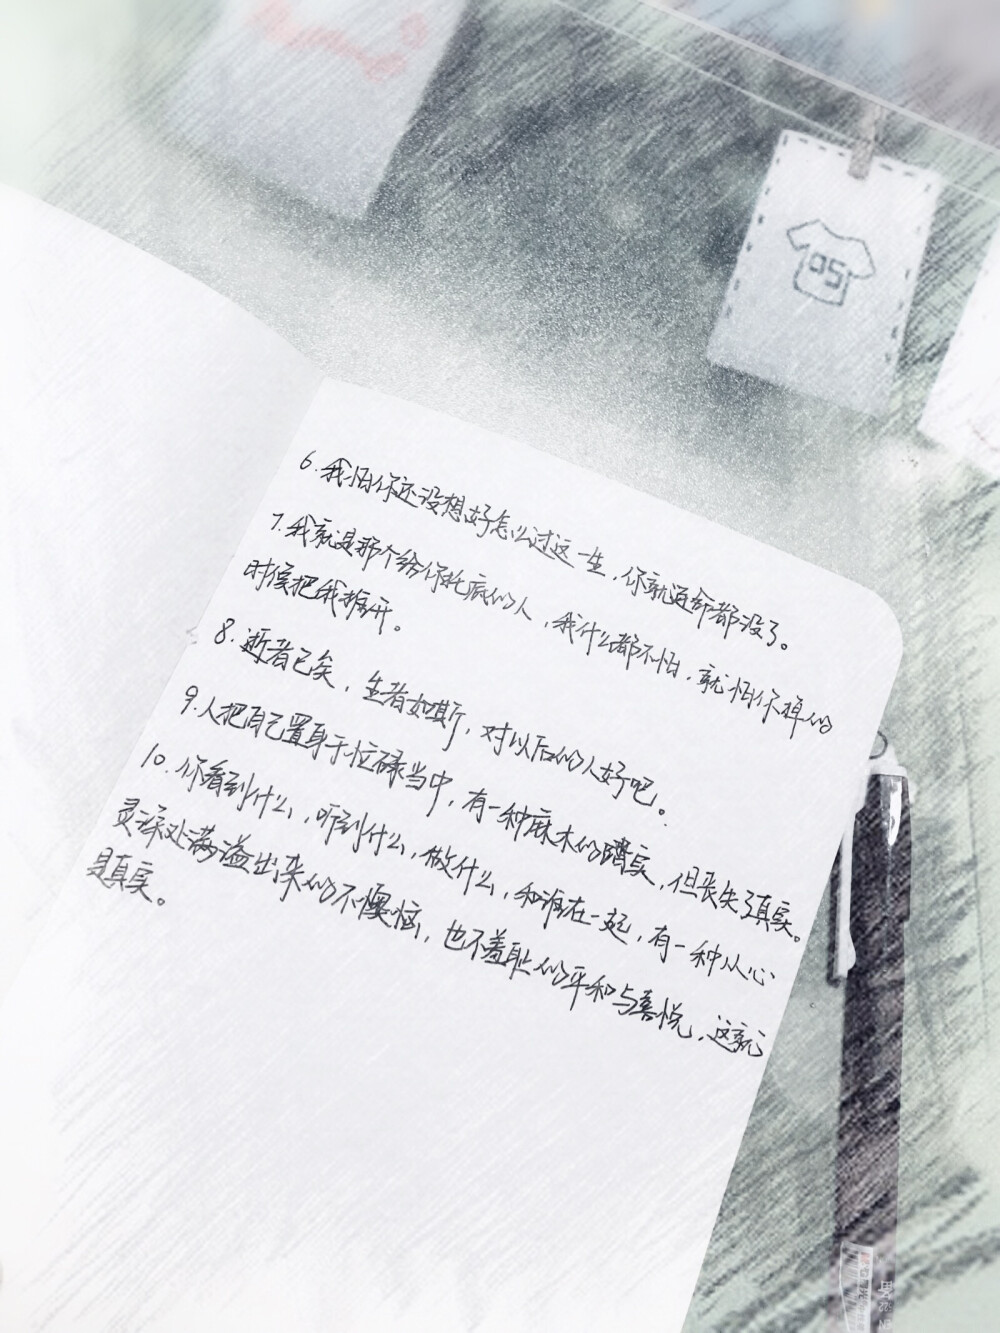 05
6. 我怕你还没想好怎么过这一生，你就连命都没了。
7. 我就是那个给你托底的人，我什么都不怕，就怕你掉的
时候把我推开。
8. 逝者已矣，生者如斯，对以后的人好吧。
9. 人把自己置身于忙碌当中，有一种麻木的踏实，但丧失了真实。
10. 你看到什么，听到什么，做什么，和谁在一起，有一种从心
灵深处满溢出来的不懊恼，也不羞耻的平和与喜悦，这就
是真实。